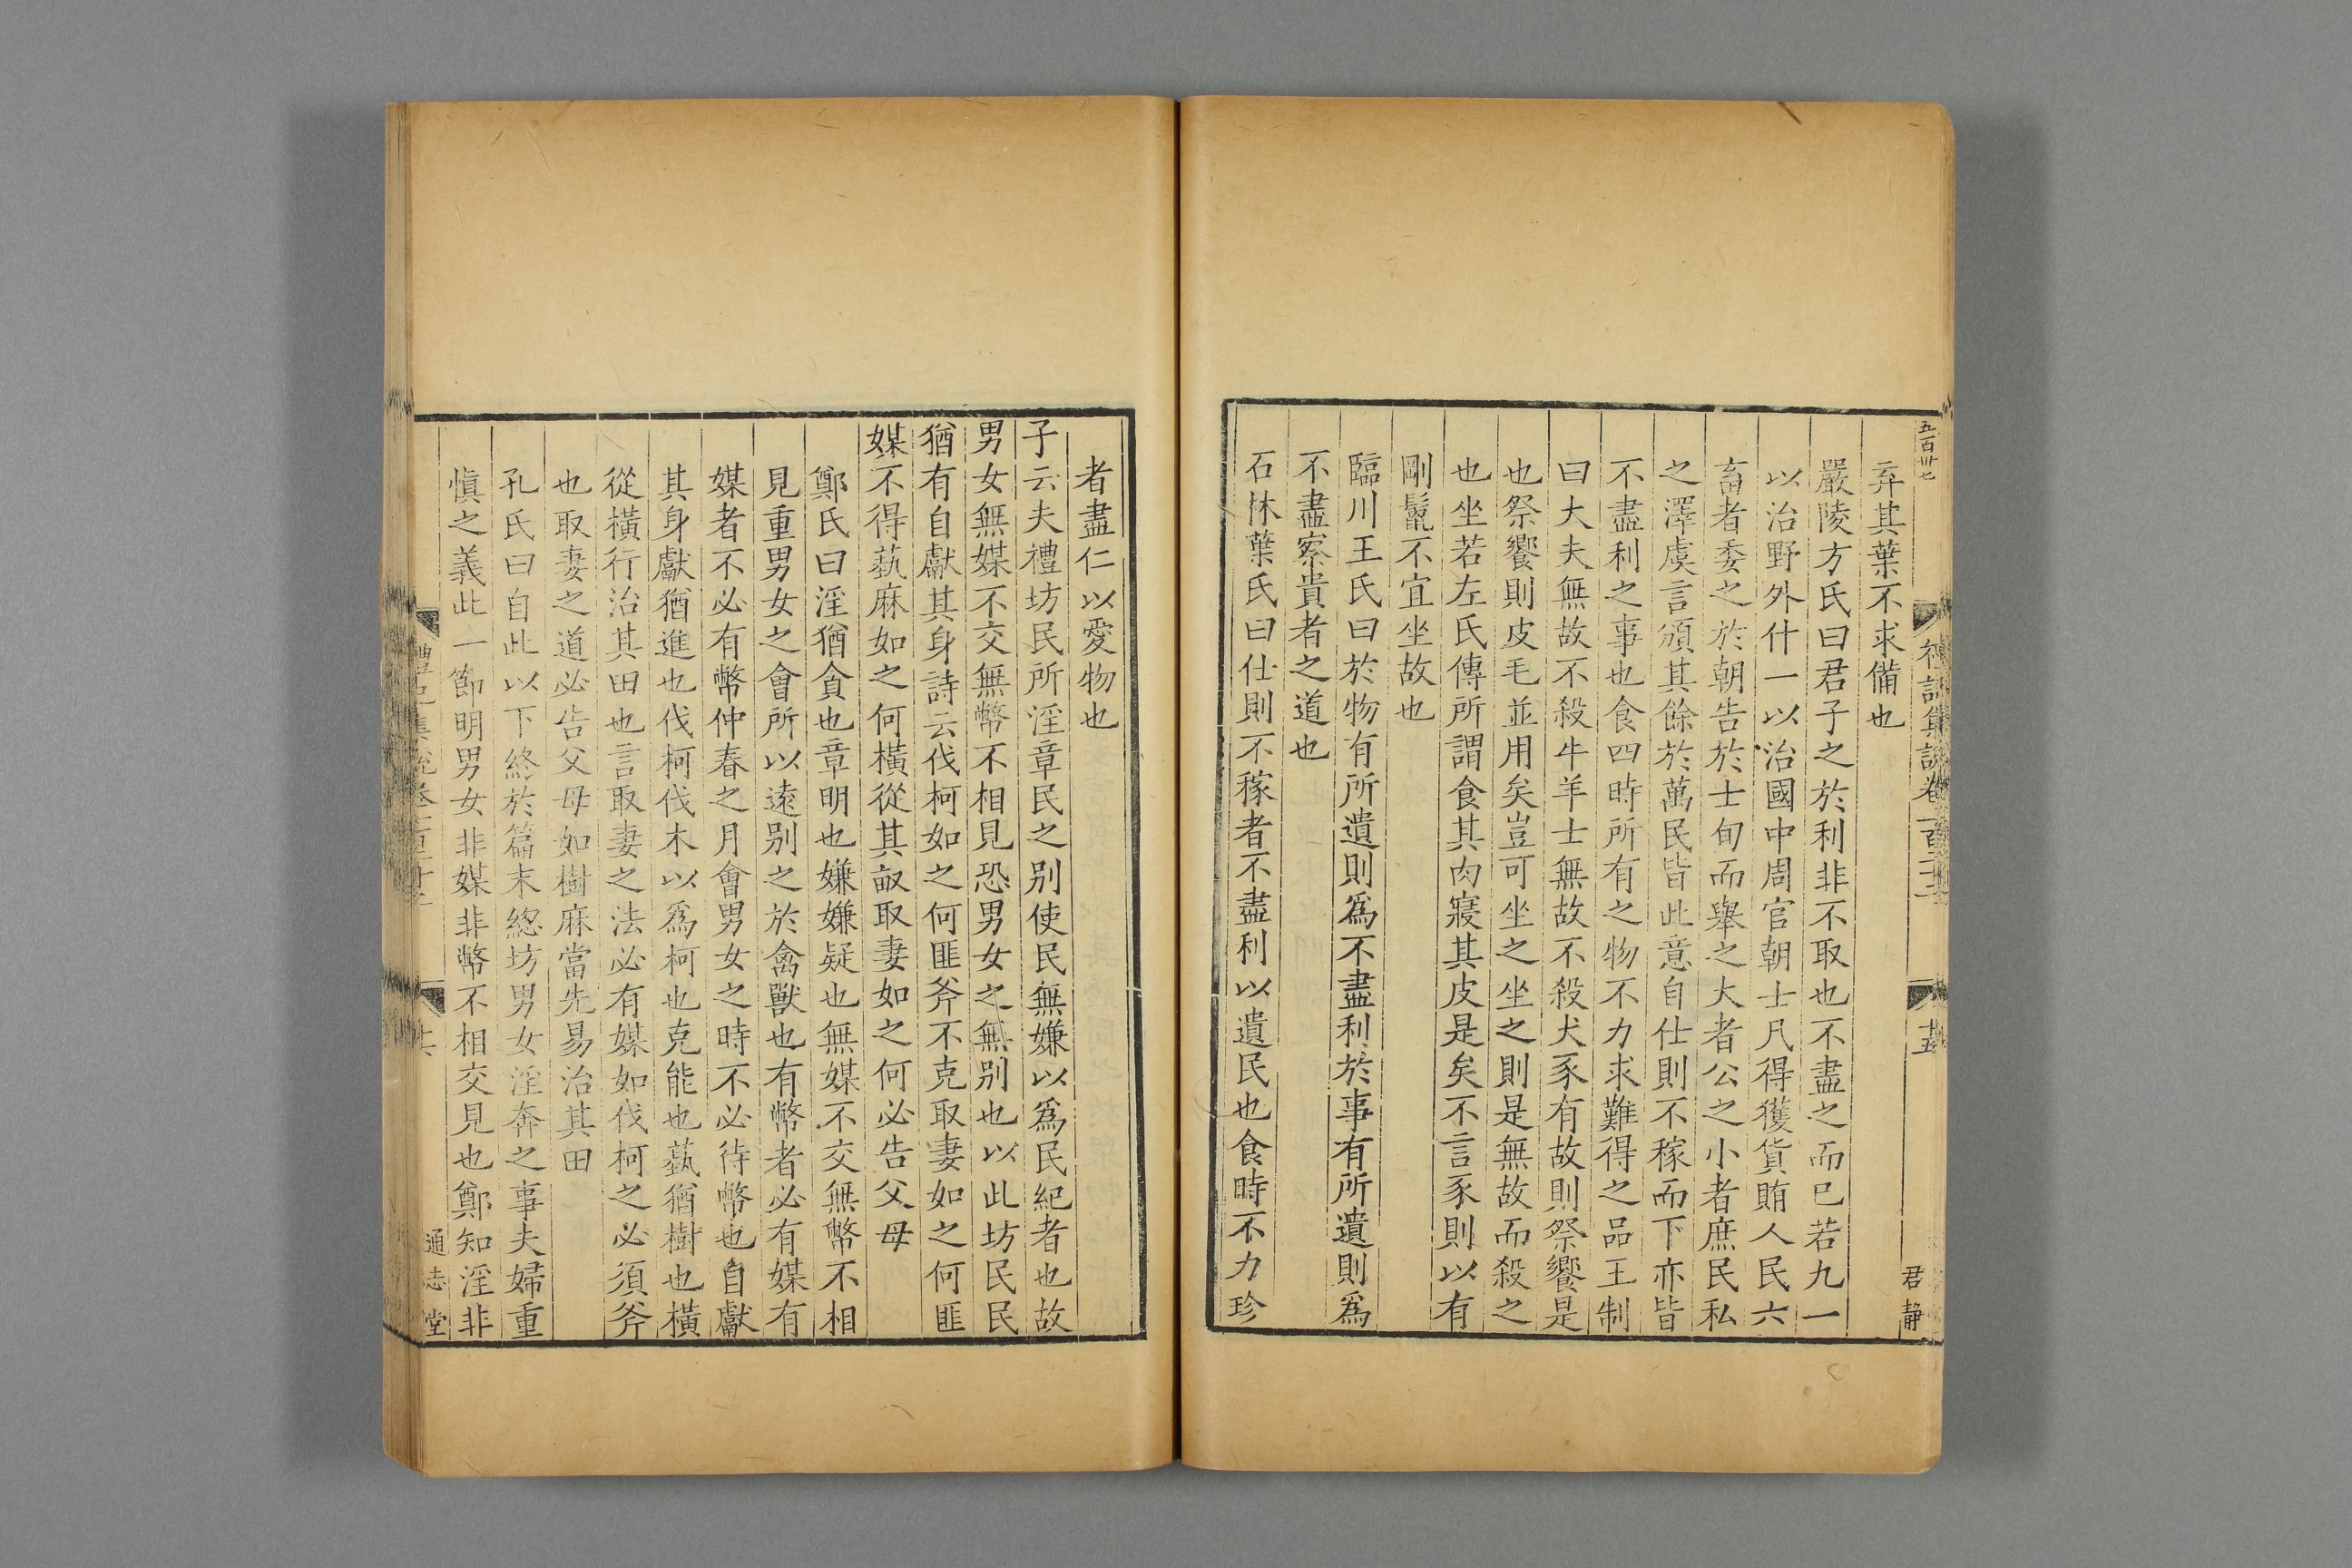 五百卅七
禮記集說卷一百二十二
十五
君靜
弃其葉不求備也
嚴陵方氏曰君子之於利非不取也不盡之而已若九一
以治野外什一以治國中周官朝士凡得獲貨賄人民六
畜者委之於朝告於士旬而舉之大者公之小者庶民私
之澤虞言頒其餘於萬民皆此意自仕則不稼而下亦皆
不盡利之事也食四時所有之物不力求難得之品王制
曰大夫無故不殺牛羊士無故不殺犬豕有故則祭饗是
也祭饗則皮毛並用矣豈可坐之坐之則是無故而殺之
也坐若左氏傳所謂食其肉寢其皮是矣不言豕則以有
剛鬣不宜坐故也
臨川王氏曰於物有所遺則爲不盡利於事有所遺則爲
不盡察貴者之道也
石林葉氏曰仕則不稼者不盡利以遺民也食時不力珍
者盡仁以愛物也
子云夫禮坊民所淫章民之别使民無嫌以爲民紀者也故
男女無媒不交無幣不相見恐男女之無别也以此坊民民
猶有自獻其身詩云伐柯如之何匪斧不克取妻如之何匪
媒不得蓺麻如之何橫從其畝取妻如之何必告父母
鄭氏曰淫猶貪也章明也嫌嫌疑也無媒不交無幣不相
見重男女之會所以遠别之於禽獸也有幣者必有媒有
媒者不必有幣仲春之月會男女之時不必待幣也自獻
其身獻猶進也伐柯伐木以爲柯也克能也蓺猶樹也橫
從橫行治其田也言取妻之法必有媒如伐柯之必須斧
也取妻之道必告父母如樹麻當先易治其田
孔氏曰自此以下終於篇末緫坊男女淫奔之事夫婦重
慎之義此一節明男女非媒非幣不相交見也鄭知淫非
通志堂